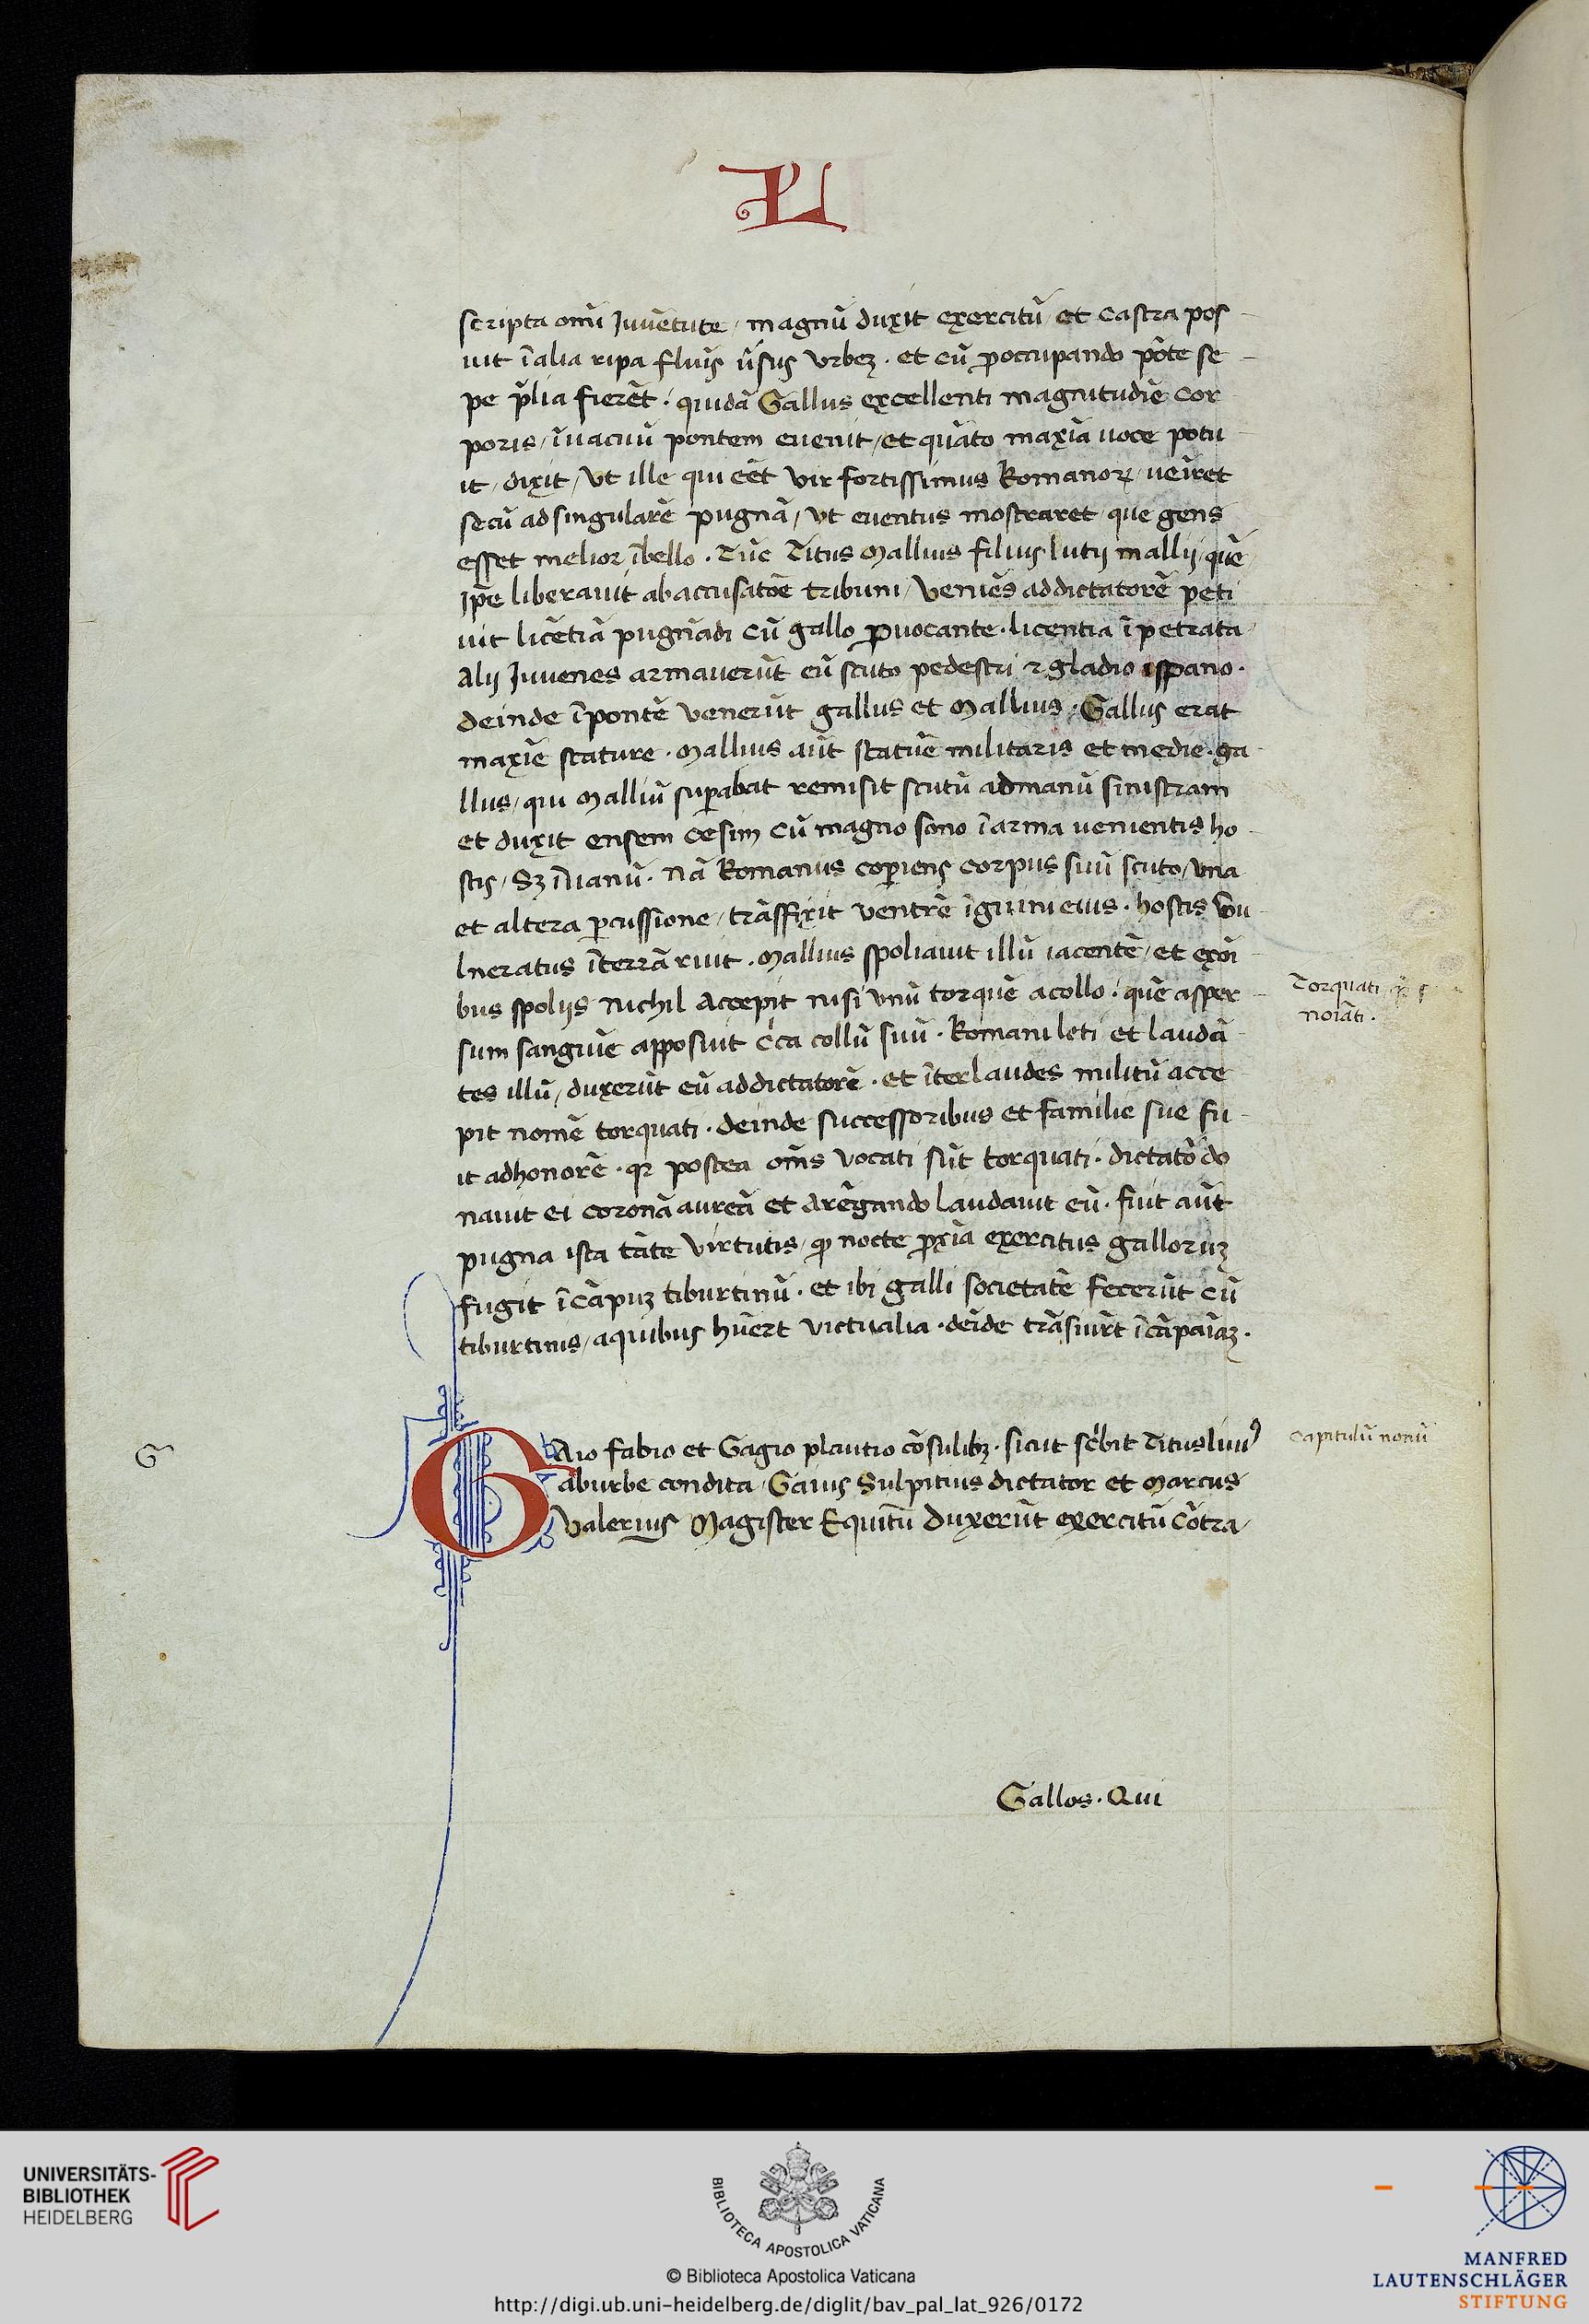 PL
scripta oīni Juuētute / magnū duxit exercitū / et castra pos
uit ī alia ripa fluij ūsus vrbez · et cū p̄occupando pōte se
pe p̄lia fierēt · quidā Gallus excellenti magnitudīe cor
poris / ī uacuū pontem euenit / et quāto maxīa uoce potu
it / dixit / vt ille qui eēt vir fortissimus Romanoꝝ / ueīret
secū ad singularē pugnā / vt euentus mostraret que gens
esset melior ī bello · Tūc Titus Mallius filius lutij mallij / quē
ip̄e liberauit ab accusatōe tribuni / veniēs ad dictatorē peti
uit licētiā pugnādi cū gallo ꝓuocante · licentia īpetrata
Alij Juuenes armauerūt eū scuto pedestri ⁊ gladio ispano ·
deinde ī pontē venerūt gallus et Mallius · Gallus erat
maxīe stature · Mallius aūt statuē militaris et medie · ga
llus / qui Malliū suꝑabat remisit scutū ad manū sinistram
et duxit ensem cesim cū magno sono ī arma uenientis ho
stis / Sꝫ ī uanū · nā Romanus coꝑiens corpus suū scuto / vna
et altera ꝑcussione / trāsfixit ventrē īguini eius · hostis vu
lneratus ī terrā ruit · Mallius spoliauit illū iacentē / et ex oī
bus spolijs nichil accepit nisi vnū torquē a collo · quē asper
sum sanguīe apposuit c̄ca collū suū · Romani leti et laudā
tes illū / duxerūt eū ad dictatorē · et īter laudes militū acce
pit nomē torquati · deinde successoribus et familie sue fu
it ad honorē · qꝛ postea oīns vocati sūt torquati · dictatō do
nauit ei coronā aureā et arēgando laudauit eū · fuit aūt
pugna ista tāte virtutis / ꝙ nocte ꝓxīa exercitus galloruꝫ
fugit ī cāpuꝫ tiburtinū · et ibi galli societatē fecerūt cū
tiburtinis / a quibus hūert victualia · deīde trāsiuēt ī cāpaīaꝫ ·
Torquati
noīati ·
G
GAio fabio et Gagio plautio cōsulibꝫ · sicut scͥbit Titus liuiꝰ
ab urbe condita · Gaius Sulpitius dictator et Marcus
Valerius Magister Equitū duxerūt exercitū cōtra
Capitulū nonū
Gallos · Qui
UNIVERSITÄTS-
BIBLIOTHEK
HEIDELBERG
BIBLIOTECA APOSTOLICA VATICANA
© Biblioteca Apostolica Vaticana
http://digi.ub.uni-heidelberg.de/diglit/bav_pal_lat_926/0172
MANFRED
LAUTENSCHLÄGER
STIFTUNG